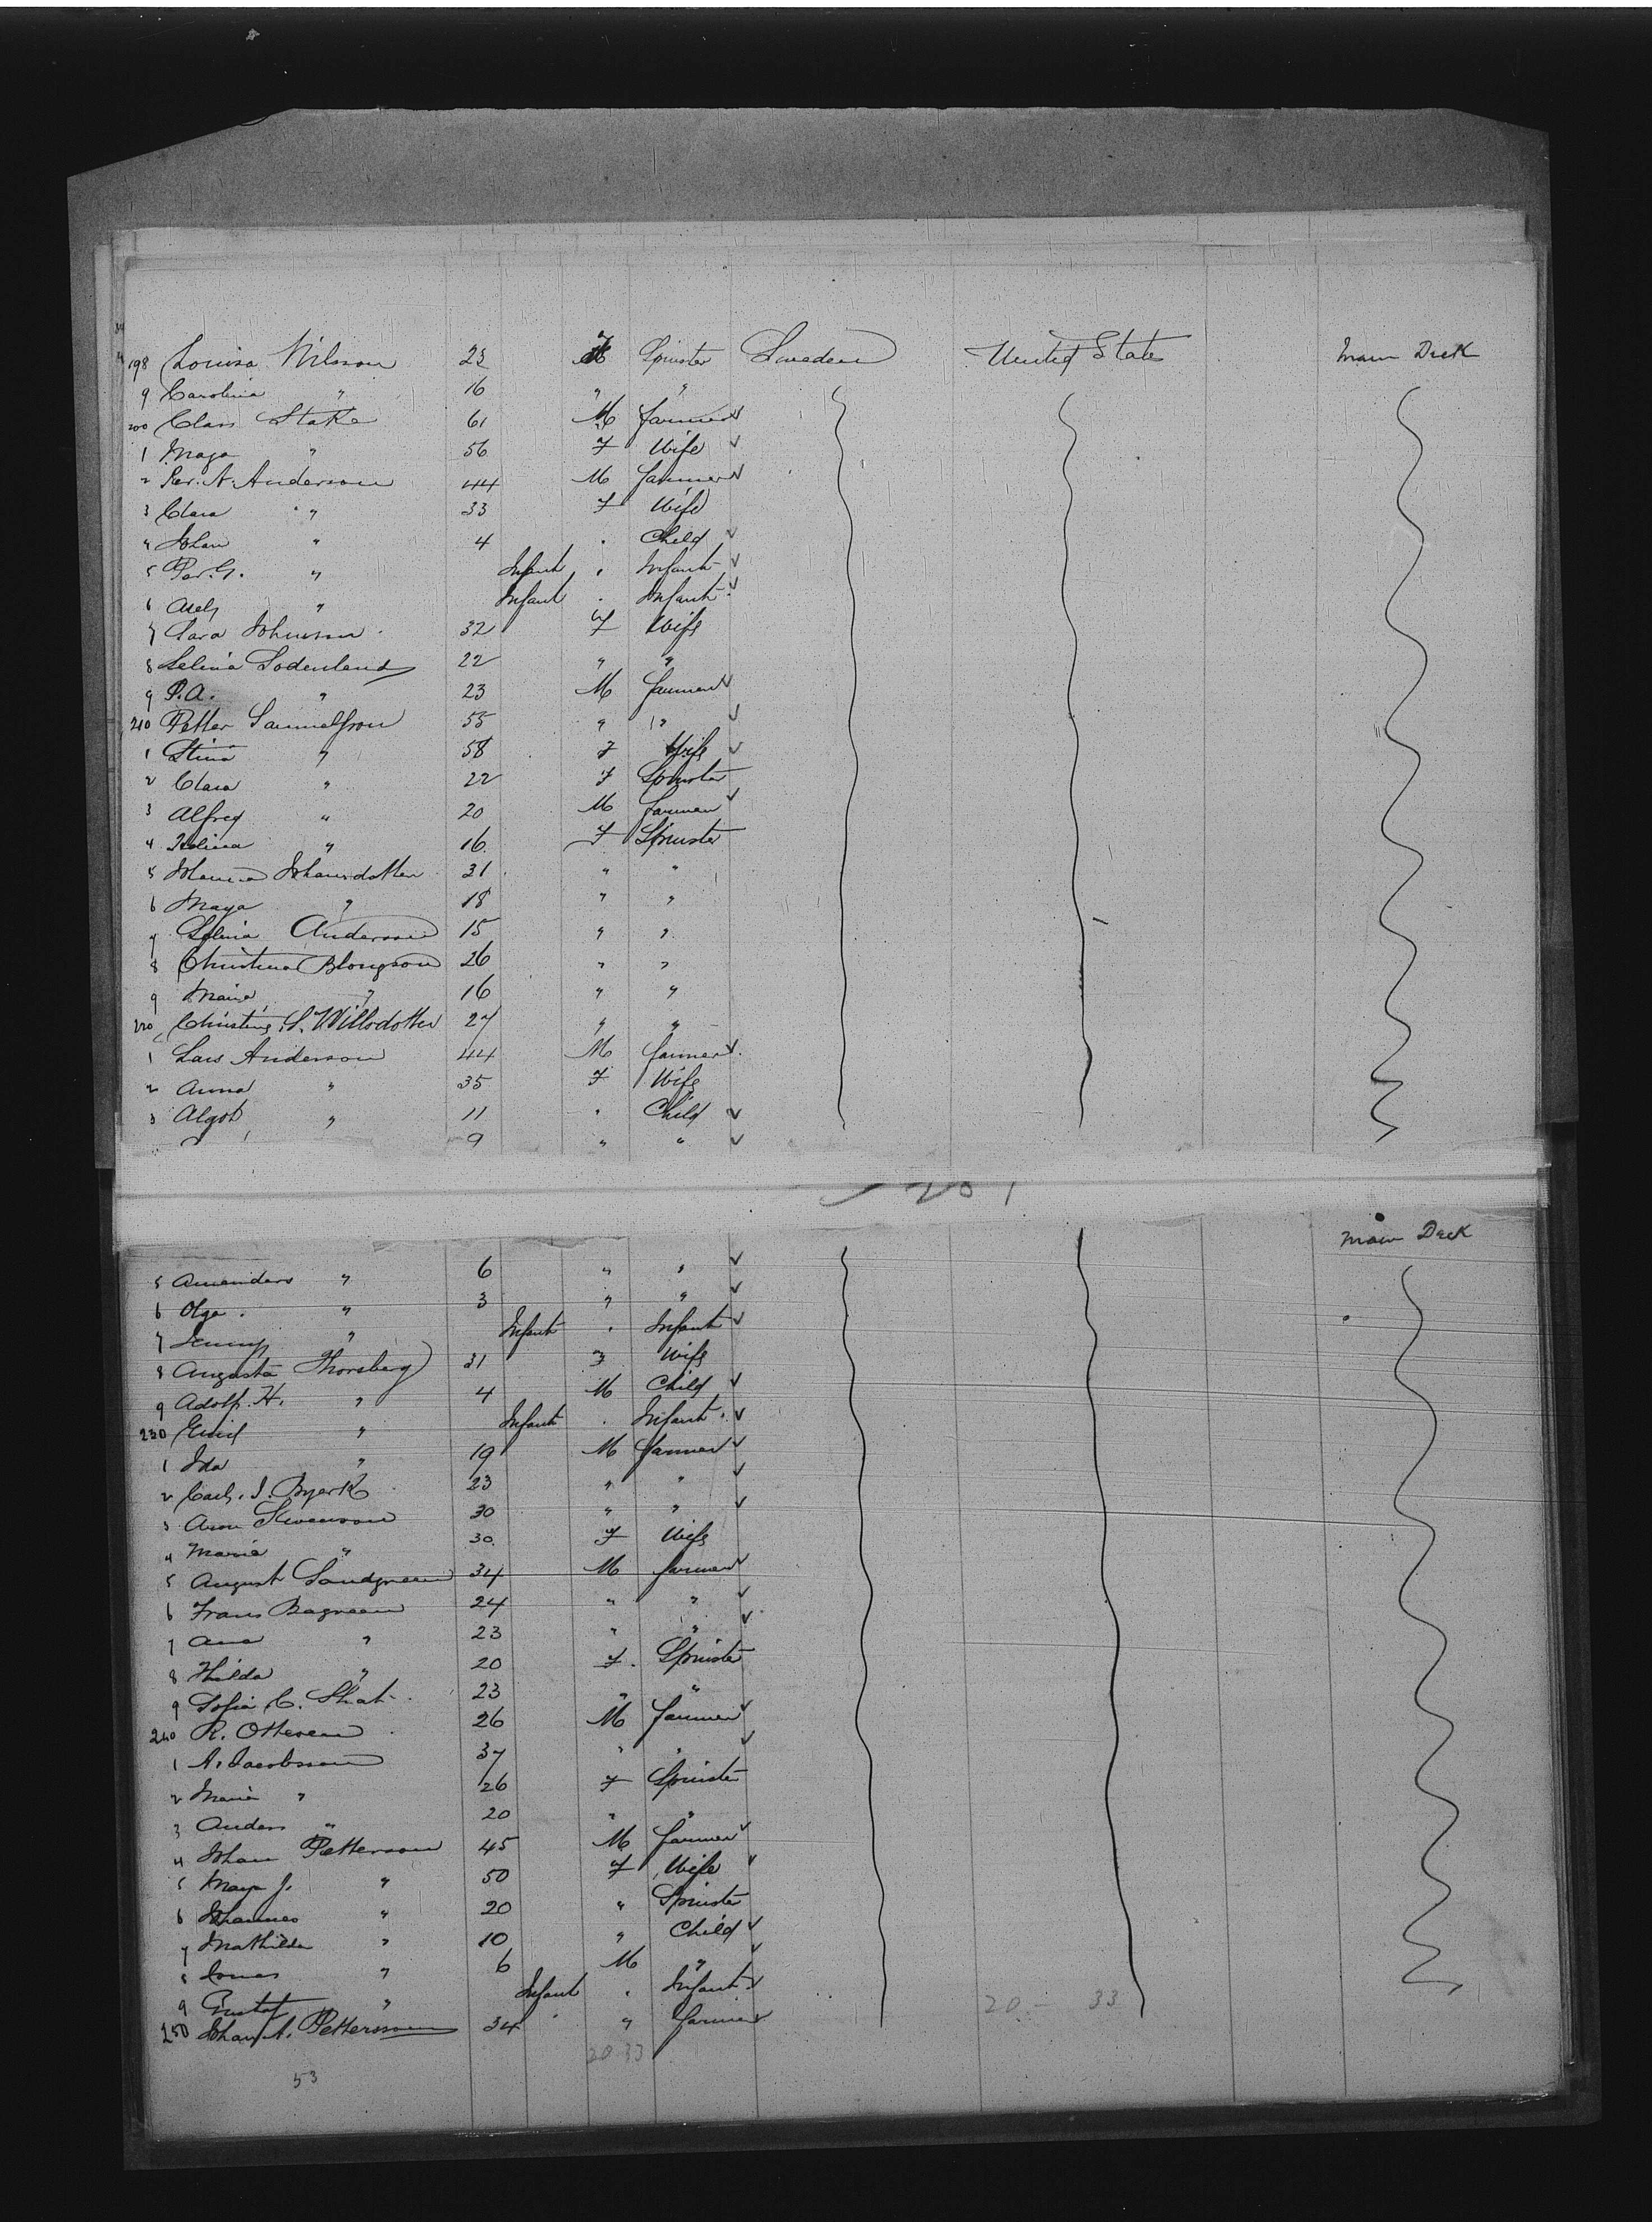 198 Louisa Nilsson 23 F Spinster Sweden United State Main Deck
9 Carolina " 16 " "
200 Clas Stake 61 M farmer
1 Maja " 56 F Wife
2 Per. A. Anderson 44 M farmer
3 Clara " 33 F Wife
4 Johan " 4 . Child
5 Per. G. " Infant " Infant
6 Axel " Infant . Infant
7 Sara Johnson 32 F Wife
8 Selina Soderlund 22 " "
9 P.A. " 23 M farmer
210 Petter Samuelsson 55 " "
1 Stina " 58 F Wife
2 Clara " 22 F Spinster
3 Alfred " 20 M farmer
4 " 16 F Spinster
5 Johanna Johansdotter 31 " "
6 Maya " 18 " "
7 Selina Anderson 15 " "
8 Christina 26 " "
9 Maria " 16 " "
220 Christina. S. 27 " "
1 Lars Anderson 44 M farmer
2 Anna " 35 F Wife
3 Algot " 11 " Child
9 " "
201
Main Deck
5 Amanders " 6 " "
6 Olga . " 3 " "
7 Jenny " Infant . Infant
8 Augusta Thorsberg 31 F Wife
9 Adolf. H. " 4 M Child
230 Emil " Infant . Infant
1 Ida " 19 M farmer
2 Carl. J. Byerk 23 " "
3 Aron Swenson 30 " "
4 Maria " 30 F Wife
5 August Sandgreen 34 M farmer
6 Frans Bagreen 24 " "
7 Ana " 23 " "
8 Hilda " 20 F. Spinster
9 Sofia C. 23 " "
240 R. Otterean 26 M farmer
1 A. Jacobsson 37 " "
2 Maria " 26 F Spinster
3 Anders " 20 " "
4 Johan Petterson 45 M farmer
5 Maya J. " 50 F Wife
6 Johannes " 20 " Spinster
7 Mathilda " 10 " Child
8 Jonas " 6 M "
9 Gustaf " Infant . Infant
250 Johan A. Pettersson 34 " farmer
20 - 33
20 33
53